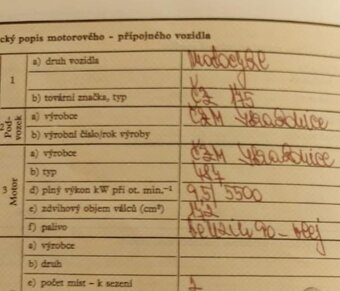 cký popis motorového - přípojného vozidla
1
a) druh vozidla motocykl
b) tovární značka, typ ČZ 175
2
Pod-
vozek
a) výrobce ČZM Strakonice
b) výrobní číslo/rok výroby
3
Motor
a) výrobce ČZM Strakonice
b) typ 487
d) plný výkon kW při ot. min.⁻¹ 9,5/5500
e) zdvihový objem válců (cm³) 172
f) palivo benzin 90-olej
a) výrobce
b) druh
e) počet míst - k sezení